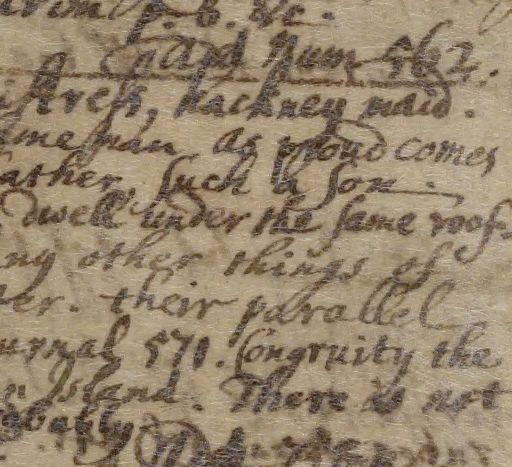 p. 8. &c.
hard Num 562.
stress, hackney maid.
same man as proud comes
father such a son.
dwell under the same roof.
ng other things of
er. their parallel
urnal 571. Congruity the
n Island. There is not